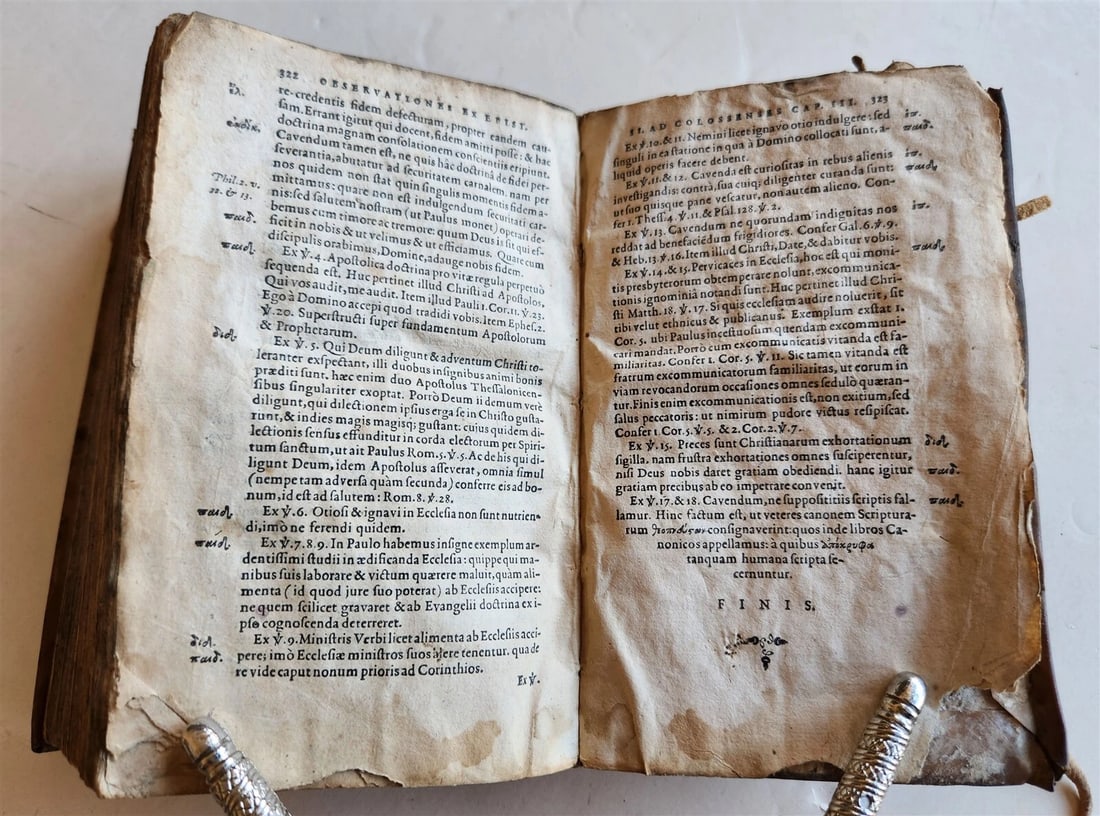 322 OBSERVATIONES EX EPIST.
re-credentis fidem defecturam, propter eandem cau-
sam. Errant igitur qui docent, fidem amitti posse: & hac
doctrina magnam consolationem conscientiis eripiunt.
Cavendum tamen est, ne quis hâc doctrinâ de fidei per-
severantia, abutatur ad securitatem carnalem. nam per-
nos quidem non stat quin singulis momentis fidem a-
mittamus: quare non est indulgendum securitati car-
nis: sed salutem nostram (ut Paulus monet) operari de-
Phil. 2. v. 12. & 13.
bemus cum timore ac tremore: quum Deus is sit qui ef-
ficit in nobis & ut velimus & ut efficiamus. Quare cum
παιδ.
discipulis orabimus, Domine, adauge nobis fidem.
Ex ℣. 4. Apostolica doctrina pro vitæ regula perpetuò
sequenda est. Huc pertinet illud Christi ad Apostolos,
Qui vos audit, me audit. Item illud Pauli 1. Cor. 11. ℣. 23.
Ego à Domino accepi quod tradidi vobis. Item Ephes. 2.
℣. 20. Superstructi super fundamentum Apostolorum
& Prophetarum.
διδ.
Ex ℣. 5. Qui Deum diligunt & adventum Christi to-
leranter exspectant, illi duobus insignibus animi bonis
præditi sunt. hæc enim duo Apostolus Thessalonicen-
sibus singulariter exoptat. Porrò Deum ii demum verè
diligunt, qui dilectionem ipsius erga se in Christo gusta-
runt, & indies magis magisq; gustant: cuius quidem di-
lectionis sensus effunditur in corda electorum per Spiri-
tum sanctum, ut ait Paulus Rom. 5. ℣. 5. Ac de his qui di-
ligunt Deum, idem Apostolus asseverat, omnia simul
(nempe tam adversa quàm secunda) conferre eis ad bo-
num, id est ad salutem: Rom. 8. ℣. 28.
Ex ℣. 6. Otiosi & ignavi in Ecclesia non sunt nutrien-
di, imò ne ferendi quidem.
Ex ℣. 7. 8. 9. In Paulo habemus insigne exemplum ar-
dentissimi studii in ædificanda Ecclesia: quippe qui ma-
nibus suis laborare & victum quærere maluit, quàm ali-
menta (id quod jure suo poterat) ab Ecclesiis accipere:
ne quem scilicet gravaret & ab Evangelii doctrina ex i-
pso cognoscenda deterreret.
διδ.
Ex ℣. 9. Ministris Verbi licet alimenta ab Ecclesiis acci-
παιδ.
pere; imò Ecclesiæ ministros suos alere tenentur. qua de
re vide caput nonum prioris ad Corinthios.
Ex ℣.
II. AD COLOSSENSES CAP. III. 323
Ex ℣. 10. & 11. Nemini licet ignavo otio indulgere: sed
singuli in ea statione in qua à Domino collocati sunt, a-
παιδ.
liquid operis facere debent.
Ex ℣. 11. & 12. Cavenda est curiositas in rebus alienis
investigandis: contrà, sua cuiq; diligenter curanda sunt:
ut suo quisque pane vescatur, non autem alieno. Con-
fer 1. Thess. 4. ℣. 11. & Psal. 128. ℣. 2.
Ex ℣. 13. Cavendum ne quorundam indignitas nos
reddat ad benefaciendum frigidiores. Confer Gal. 6. ℣. 9.
& Heb. 13. ℣. 16. Item illud Christi, Date, & dabitur vobis.
Ex ℣. 14. & 15. Pervicaces in Ecclesia, hoc est qui moni-
tis presbyterorum obtemperare nolunt, excommunica-
tionis ignominiâ notandi sunt. Huc pertinet illud Chri-
sti Matth. 18. ℣. 17. Si quis ecclesiam audire noluerit, sit
tibi velut ethnicus & publicanus. Exemplum exstat 1.
Cor. 5. ubi Paulus incestuosum quendam excommuni-
cari mandat. Porrò cum excommunicatis vitanda est fa-
miliaritas. Confer 1. Cor. 5. ℣. 11. Sic tamen vitanda est
fratrum excommunicatorum familiaritas, ut eorum in
viam revocandorum occasiones omnes sedulò quæran-
tur. Finis enim excommunicationis est, non exitium, sed
salus peccatoris: ut nimirum pudore victus resipiscat.
Confer 1. Cor. 5. ℣. 5. & 2. Cor. 2. ℣. 7.
Ex ℣. 15. Preces sunt Christianarum exhortationum
διδ.
sigilla. nam frustra exhortationes omnes susciperentur,
nisi Deus nobis daret gratiam obediendi. hanc igitur
παιδ.
gratiam precibus ab eo impetrare convenit.
Ex ℣. 17. & 18. Cavendum, ne supposititiis scriptis fal-
lamur. Hinc factum est, ut veteres canonem Scriptura-
rum θεοπνεύστων consignaverint: quos inde libros Ca-
nonicos appellamus: à quibus ἀπόκρυφα
tanquam humana scripta se-
cernuntur.
FINIS.